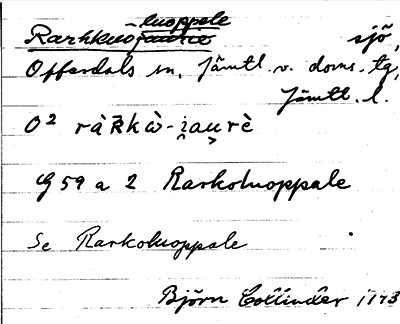 -luoppale
Rarhkuojaurie sjö,
Offerdals sn. Jämtl. v. doms. tg,
Jämtl. l.
O² ràʀ̄kὼ-i̯au̯rè
G 59 a 2 Rarkoluoppale
Se Rarkoluoppale
Björn Collinder 1173